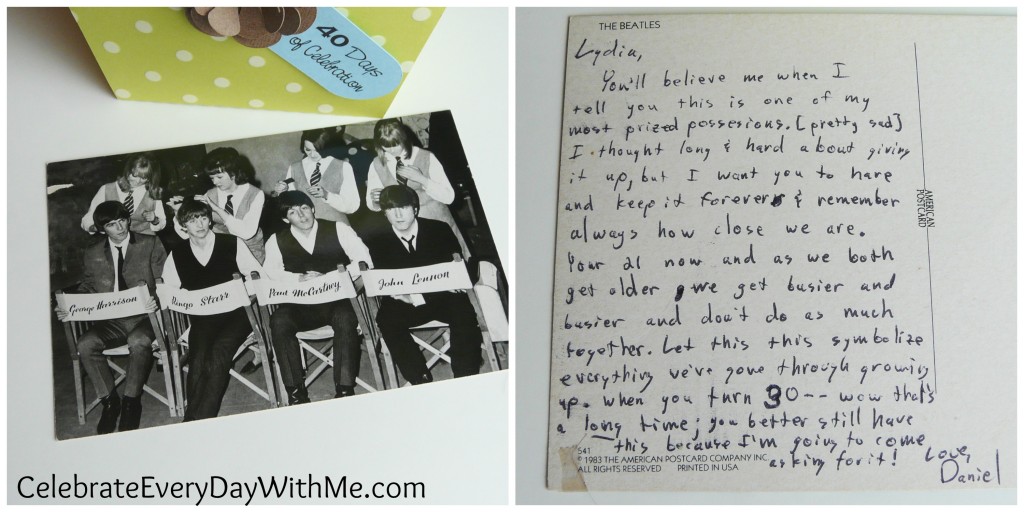 40 Days
of Celebration
George Harrison
Ringo Starr
Paul McCartney
John Lennon
CelebrateEveryDayWithMe.com
THE BEATLES
Lydia,
You'll believe me when I
tell you this is one of my
most prized possesions. [pretty sad]
I thought long & hard about giving
it up, but I want you to have
and keep it forever & remember
always how close we are.
Your 21 now and as we both
get older, we get busier and
busier and don't do as much
together. Let this this symbolize
everything we've gone through growing
up. when you turn 30-- wow that's
a long time; you better still have
this because I'm going to come
asking for it!
Love,
Daniel
AMERICAN
POSTCARD
541
© 1983 THE AMERICAN POSTCARD COMPANY INC.
ALL RIGHTS RESERVED PRINTED IN USA